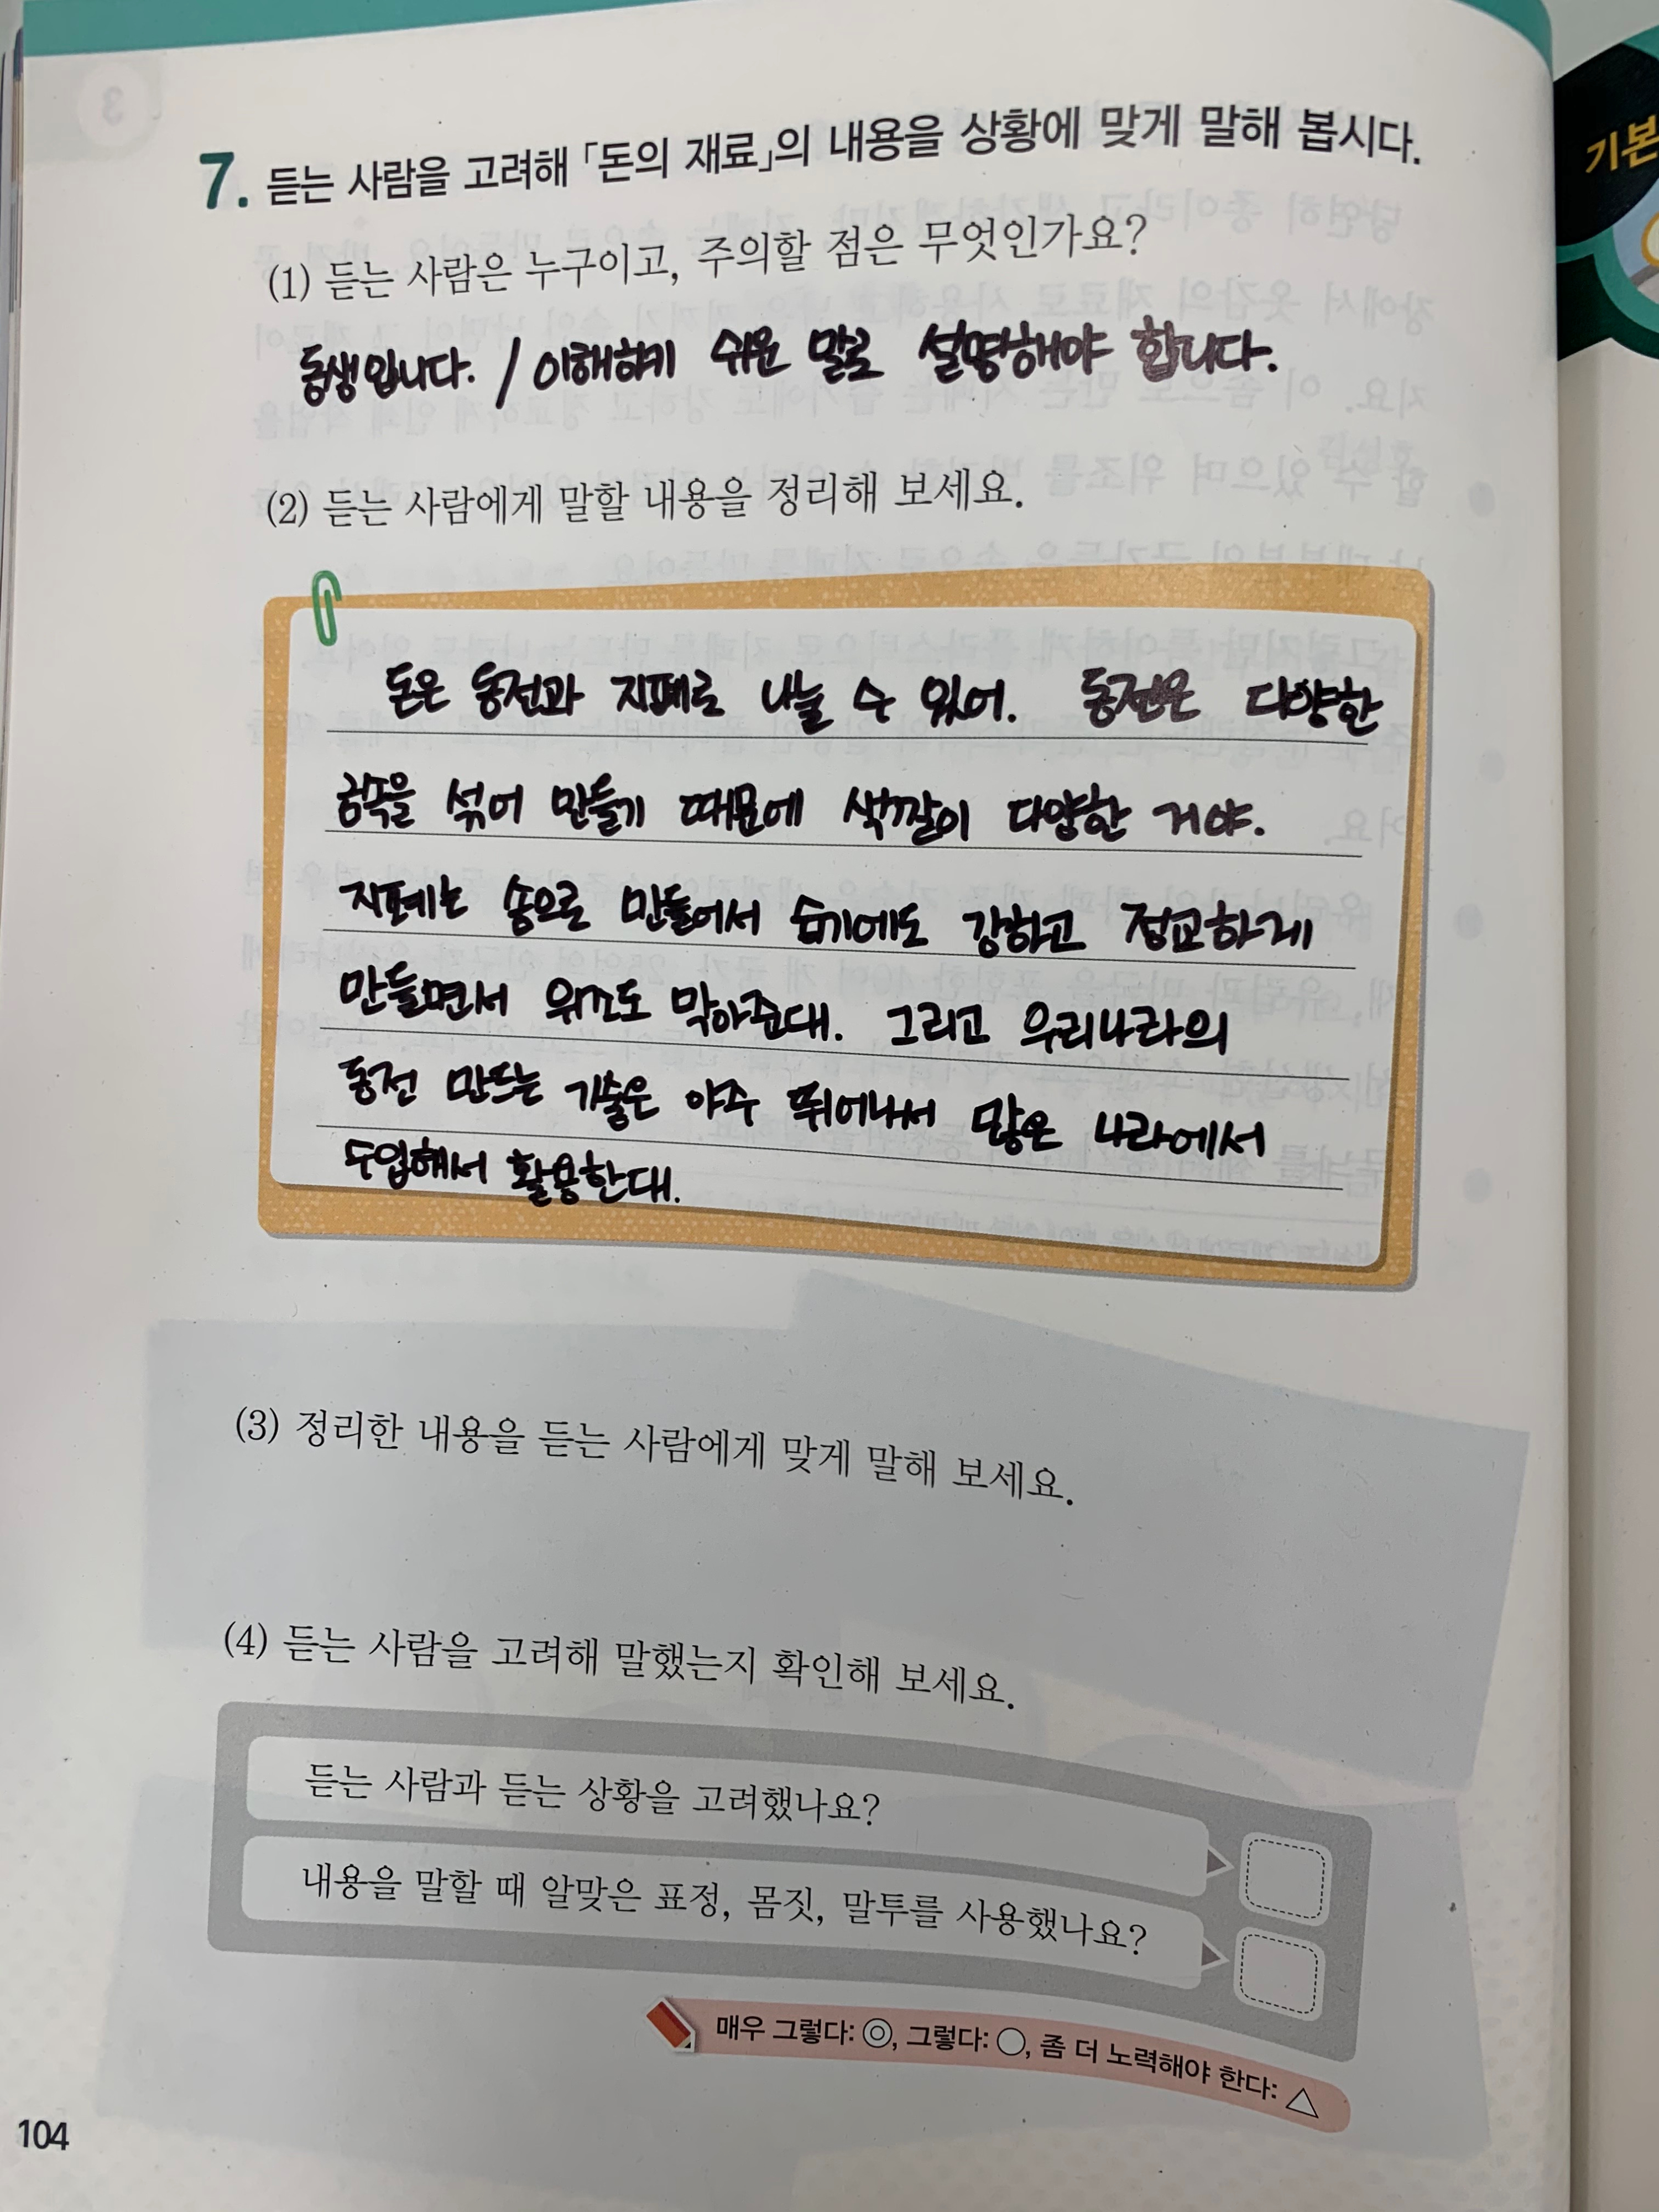 7. 듣는 사람을 고려해 「돈의 재료」의 내용을 상황에 맞게 말해 봅시다.
(1) 듣는 사람은 누구이고, 주의할 점은 무엇인가요?
동생입니다. / 이해하기 쉬운 말로 설명해야 합니다.
(2) 듣는 사람에게 말할 내용을 정리해 보세요.
돈은 동전과 지폐로 나눌 수 있어. 동전은 다양한
금속을 섞어 만들기 때문에 색깔이 다양한 거야.
지폐는 솜으로 만들어서 습기에도 강하고 정교하게
만들면서 위조도 막아준대. 그리고 우리나라의
동전 만드는 기술은 아주 뛰어나서 많은 나라에서
도입해서 활용한대.
(3) 정리한 내용을 듣는 사람에게 맞게 말해 보세요.
(4) 듣는 사람을 고려해 말했는지 확인해 보세요.
듣는 사람과 듣는 상황을 고려했나요?
내용을 말할 때 알맞은 표정, 몸짓, 말투를 사용했나요?
매우 그렇다: ◎, 그렇다: ○, 좀 더 노력해야 한다: △
104
기본